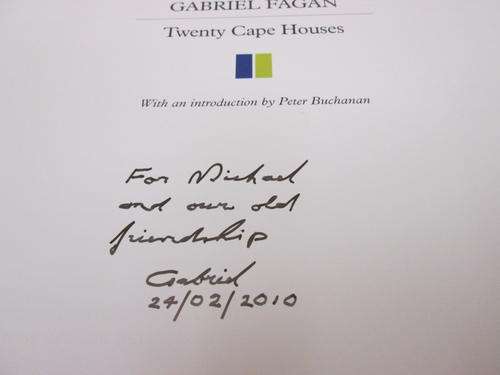 GABRIEL FAGAN
Twenty Cape Houses
With an introduction by Peter Buchanan
For Michael
and our old
friendship
Gabriel
24/02/2010